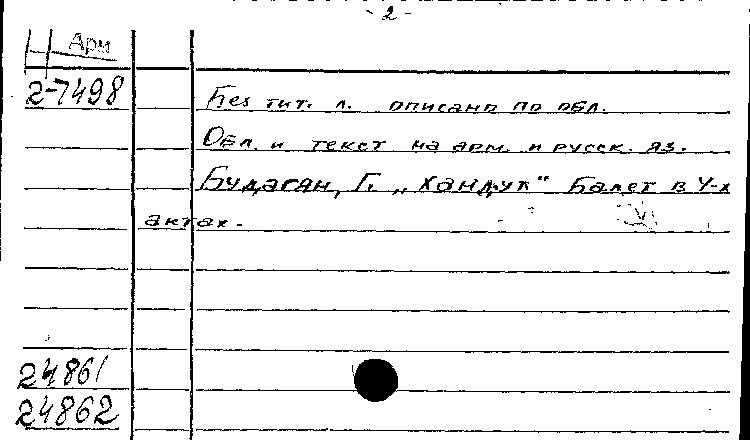 - 2 -
Арм
2-7498
Без тит. л. описано по обл.
Обл. и текст на арм. и русск. яз.
Будагян, Г. „Хандут“ Балет в 4-х
актах.
24861
24862